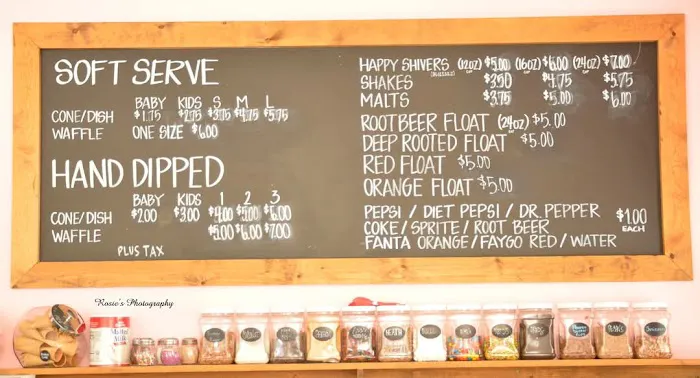 SOFT SERVE
BABY KIDS S M L
CONE/DISH $1.75 $2.75 $3.75 $4.75 $5.75
WAFFLE ONE SIZE $6.00
HAND DIPPED
BABY KIDS 1 2 3
CONE/DISH $2.00 $3.00 $4.00 $5.00 $6.00
WAFFLE $5.00 $6.00 $7.00
PLUS TAX
HAPPY SHIVERS (12OZ) $5.00 (16OZ) $6.00 (24OZ) $7.00
SHAKES $3.50 $4.75 $5.75
MALTS $3.75 $5.00 $6.00
ROOTBEER FLOAT (24OZ) $5.00
DEEP ROOTED FLOAT $5.00
RED FLOAT $5.00
ORANGE FLOAT $5.00
PEPSI / DIET PEPSI / DR. PEPPER
COKE / SPRITE / ROOT BEER
FANTA ORANGE / FAYGO RED / WATER
$1.00
EACH
Rosie's Photography
HEATH